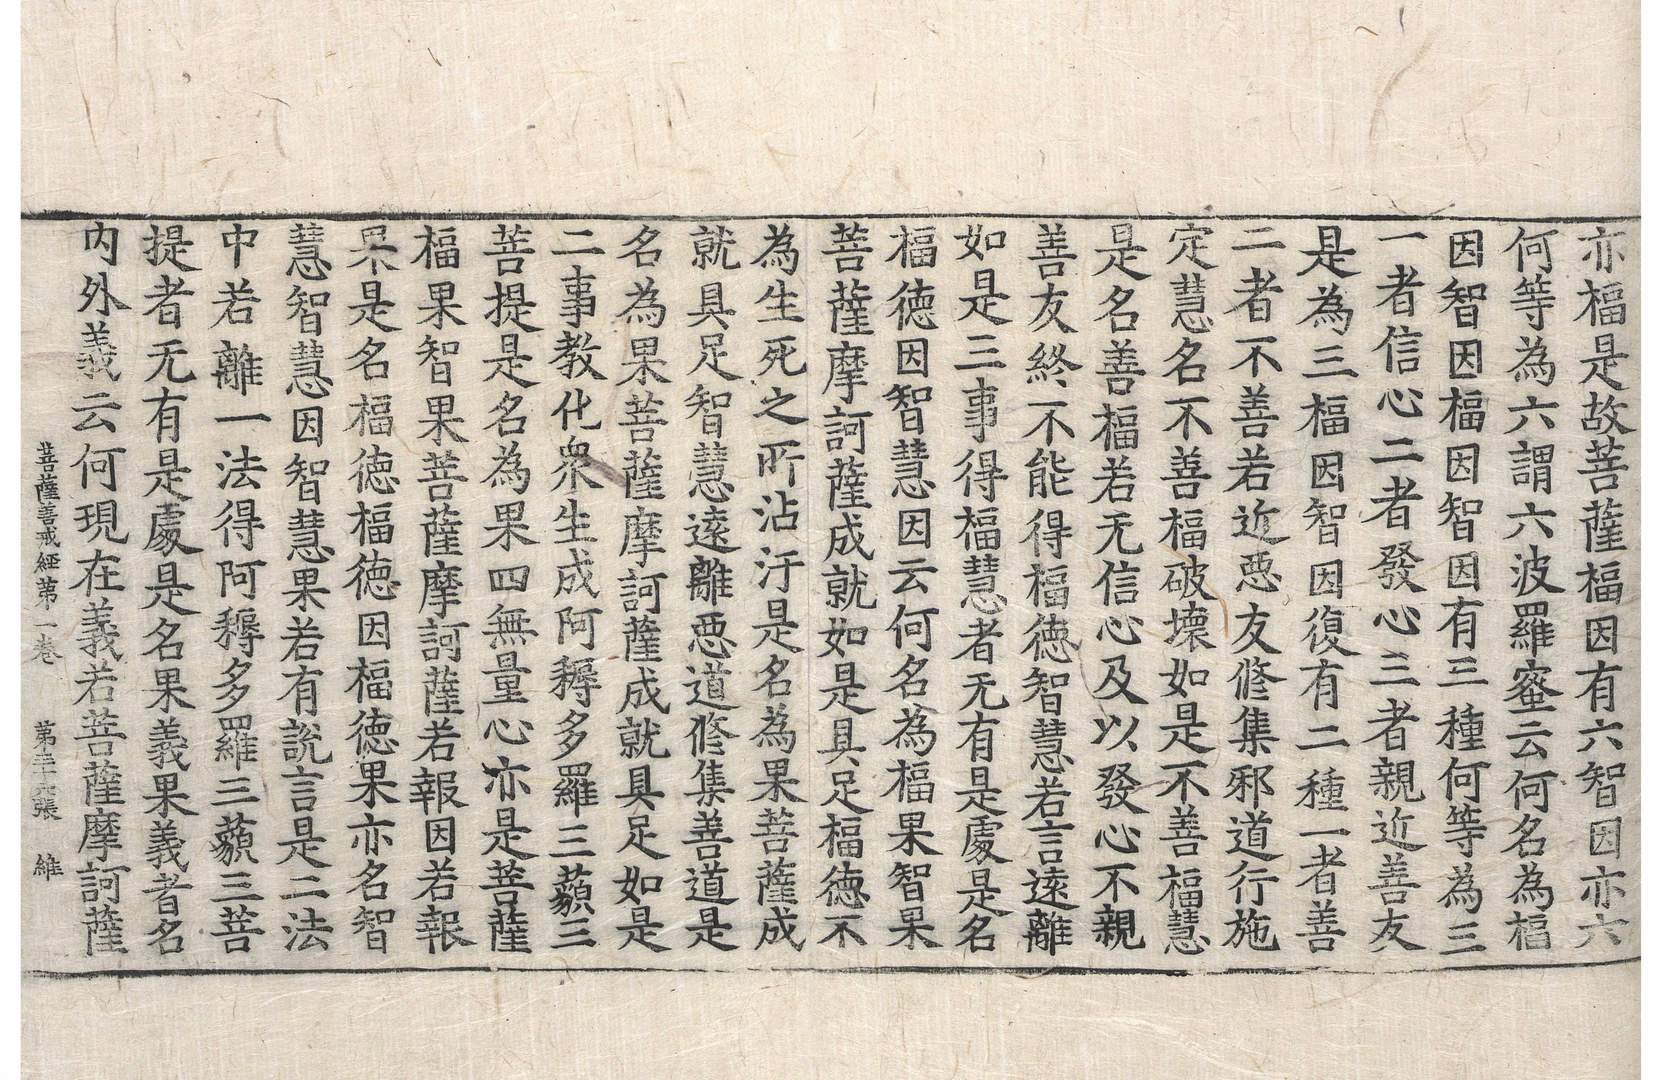 亦福是故菩薩福因有六智因亦六
何等為六謂六波羅蜜云何名為福
因智因福因智因有三種何等為三
一者信心二者發心三者親近善友
是為三福因智因復有二種一者善
二者不善若近惡友修集邪道行施
定慧名不善福破壞如是不善福慧
是名善福若无信心及以發心不親
善友終不能得福德智慧若言遠離
如是三事得福慧者无有是處是名
福德因智慧因云何名為福果智果
菩薩摩訶薩成就如是具足福德不
為生死之所沾汙是名為果菩薩成
就具足智慧遠離惡道修集善道是
名為果菩薩摩訶薩成就具足如是
二事教化衆生成阿耨多羅三藐三
菩提是名為果四無量心亦是菩薩
福果智果菩薩摩訶薩若報因若報
果是名福德福德因福德果亦名智
慧智慧因智慧果若有說言是二法
中若離一法得阿耨多羅三藐三菩
提者无有是處是名果義果義者名
內外義云何現在義若菩薩摩訶薩
菩薩善戒經第一卷 第三十六張 維